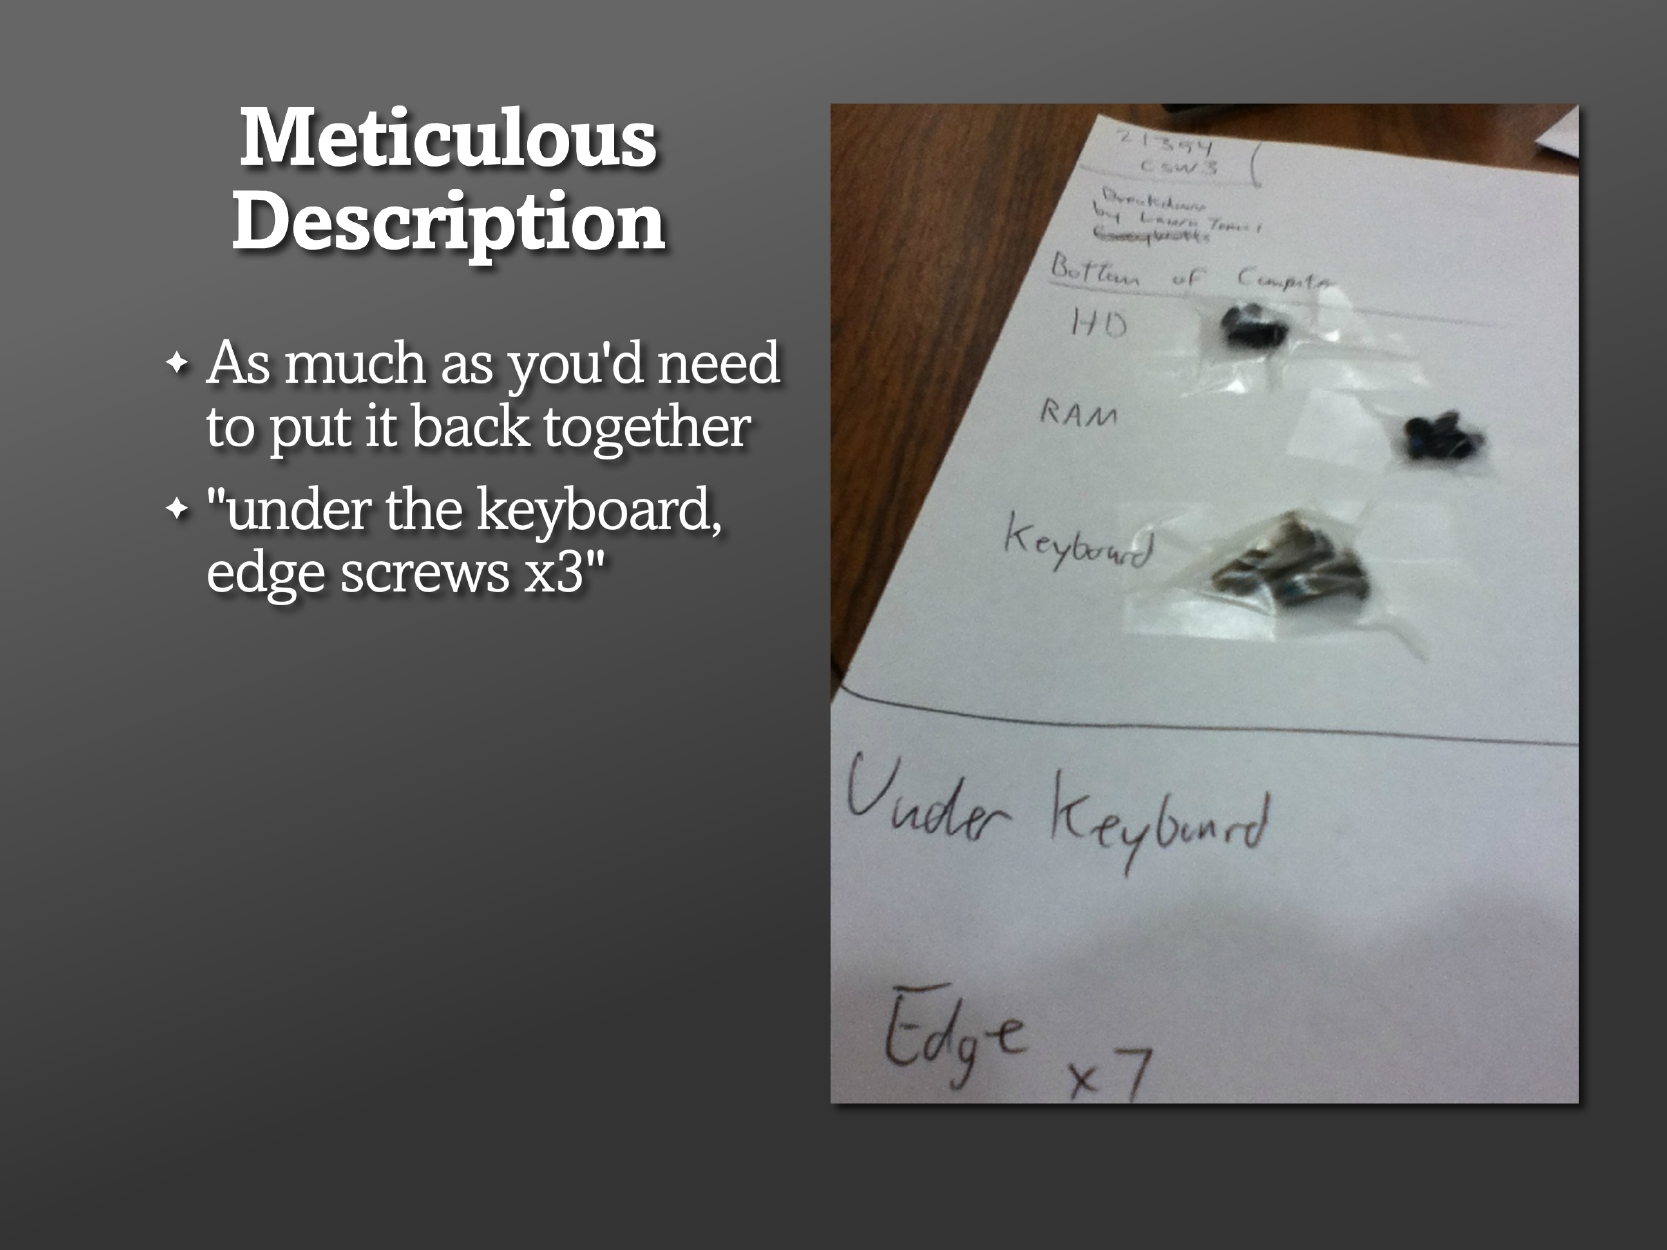 Meticulous
Description
As much as you'd need
to put it back together
"under the keyboard,
edge screws x3"
21394
CSW3
Breakdown
by
Bottom of Computer
HD
RAM
Keyboard
Under Keyboard
Edge
x7